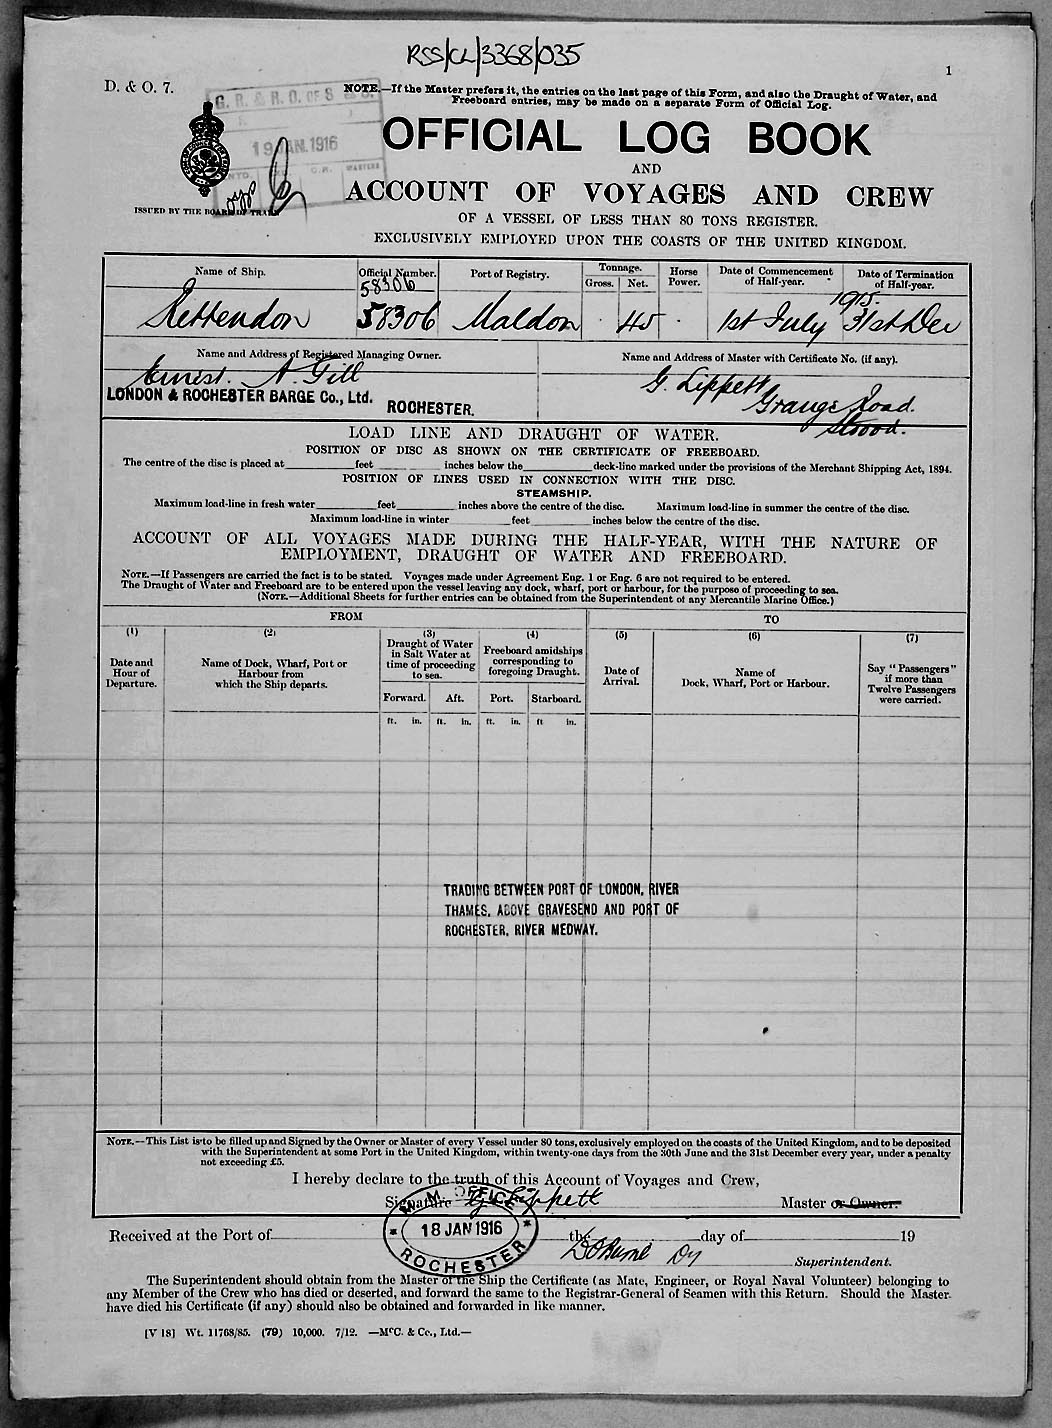 RSS/CL/3368/035
1
D. & O. 7.
NOTE.—If the Master prefers it, the entries on the last page of this Form, and also the Draught of Water, and
Freeboard entries, may be made on a separate Form of Official Log.
G. R. & R. O. OF S
19 JAN. 1916
OFFICIAL LOG BOOK
AND
ACCOUNT OF VOYAGES AND CREW
ISSUED BY THE BOARD OF TRADE
OF A VESSEL OF LESS THAN 80 TONS REGISTER.
EXCLUSIVELY EMPLOYED UPON THE COASTS OF THE UNITED KINGDOM.
Name of Ship. Official Number. Port of Registry. Tonnage. Horse Power. Date of Commencement of Half-year. Date of Termination of Half-year.
Gross. Net.
58306
1915.
Rettendon 58306 Maldon 45 1st July 31st Dec
Name and Address of Registered Managing Owner. Name and Address of Master with Certificate No. (if any).
Ernest. A. Gill G. Lippett
LONDON & ROCHESTER BARGE Co., Ltd. Grange Road.
ROCHESTER. Strood.
LOAD LINE AND DRAUGHT OF WATER.
POSITION OF DISC AS SHOWN ON THE CERTIFICATE OF FREEBOARD.
The centre of the disc is placed at feet inches below the deck-line marked under the provisions of the Merchant Shipping Act, 1894.
POSITION OF LINES USED IN CONNECTION WITH THE DISC.
STEAMSHIP.
Maximum load-line in fresh water feet inches above the centre of the disc. Maximum load-line in summer the centre of the disc.
Maximum load-line in winter feet inches below the centre of the disc.
ACCOUNT OF ALL VOYAGES MADE DURING THE HALF-YEAR, WITH THE NATURE OF
EMPLOYMENT, DRAUGHT OF WATER AND FREEBOARD.
NOTE.—If Passengers are carried the fact is to be stated. Voyages made under Agreement Eng. 1 or Eng. 6 are not required to be entered.
The Draught of Water and Freeboard are to be entered upon the vessel leaving any dock, wharf, port or harbour, for the purpose of proceeding to sea.
(NOTE.—Additional Sheets for further entries can be obtained from the Superintendent of any Mercantile Marine Office.)
FROM TO
(1) (2) (3) (4) (5) (6) (7)
Date and Hour of Departure.
Name of Dock, Wharf, Port or Harbour from which the Ship departs.
Draught of Water in Salt Water at time of proceeding to sea.
Freeboard amidships corresponding to foregoing Draught.
Date of Arrival.
Name of Dock, Wharf, Port or Harbour.
Say "Passengers" if more than Twelve Passengers were carried.
Forward. Aft. Port. Starboard.
ft. in. ft. in. ft. in. ft in.
TRADING BETWEEN PORT OF LONDON, RIVER
THAMES, ABOVE GRAVESEND AND PORT OF
ROCHESTER, RIVER MEDWAY.
NOTE.—This List is to be filled up and Signed by the Owner or Master of every Vessel under 80 tons, exclusively employed on the coasts of the United Kingdom, and to be deposited
with the Superintendent at some Port in the United Kingdom, within twenty-one days from the 30th June and the 31st December every year, under a penalty
not exceeding £5.
I hereby declare to the truth of this Account of Voyages and Crew,
Signature G. Lippett Master or Owner.
M. M. OFFICE
18 JAN 1916
ROCHESTER
Received at the Port of the day of 19
Dy Superintendent.
The Superintendent should obtain from the Master of the Ship the Certificate (as Mate, Engineer, or Royal Naval Volunteer) belonging to
any Member of the Crew who has died or deserted, and forward the same to the Registrar-General of Seamen with this Return. Should the Master
have died his Certificate (if any) should also be obtained and forwarded in like manner.
[V 18] Wt. 11768/85. (79) 10,000. 7/12. —McC. & Co., Ltd.—